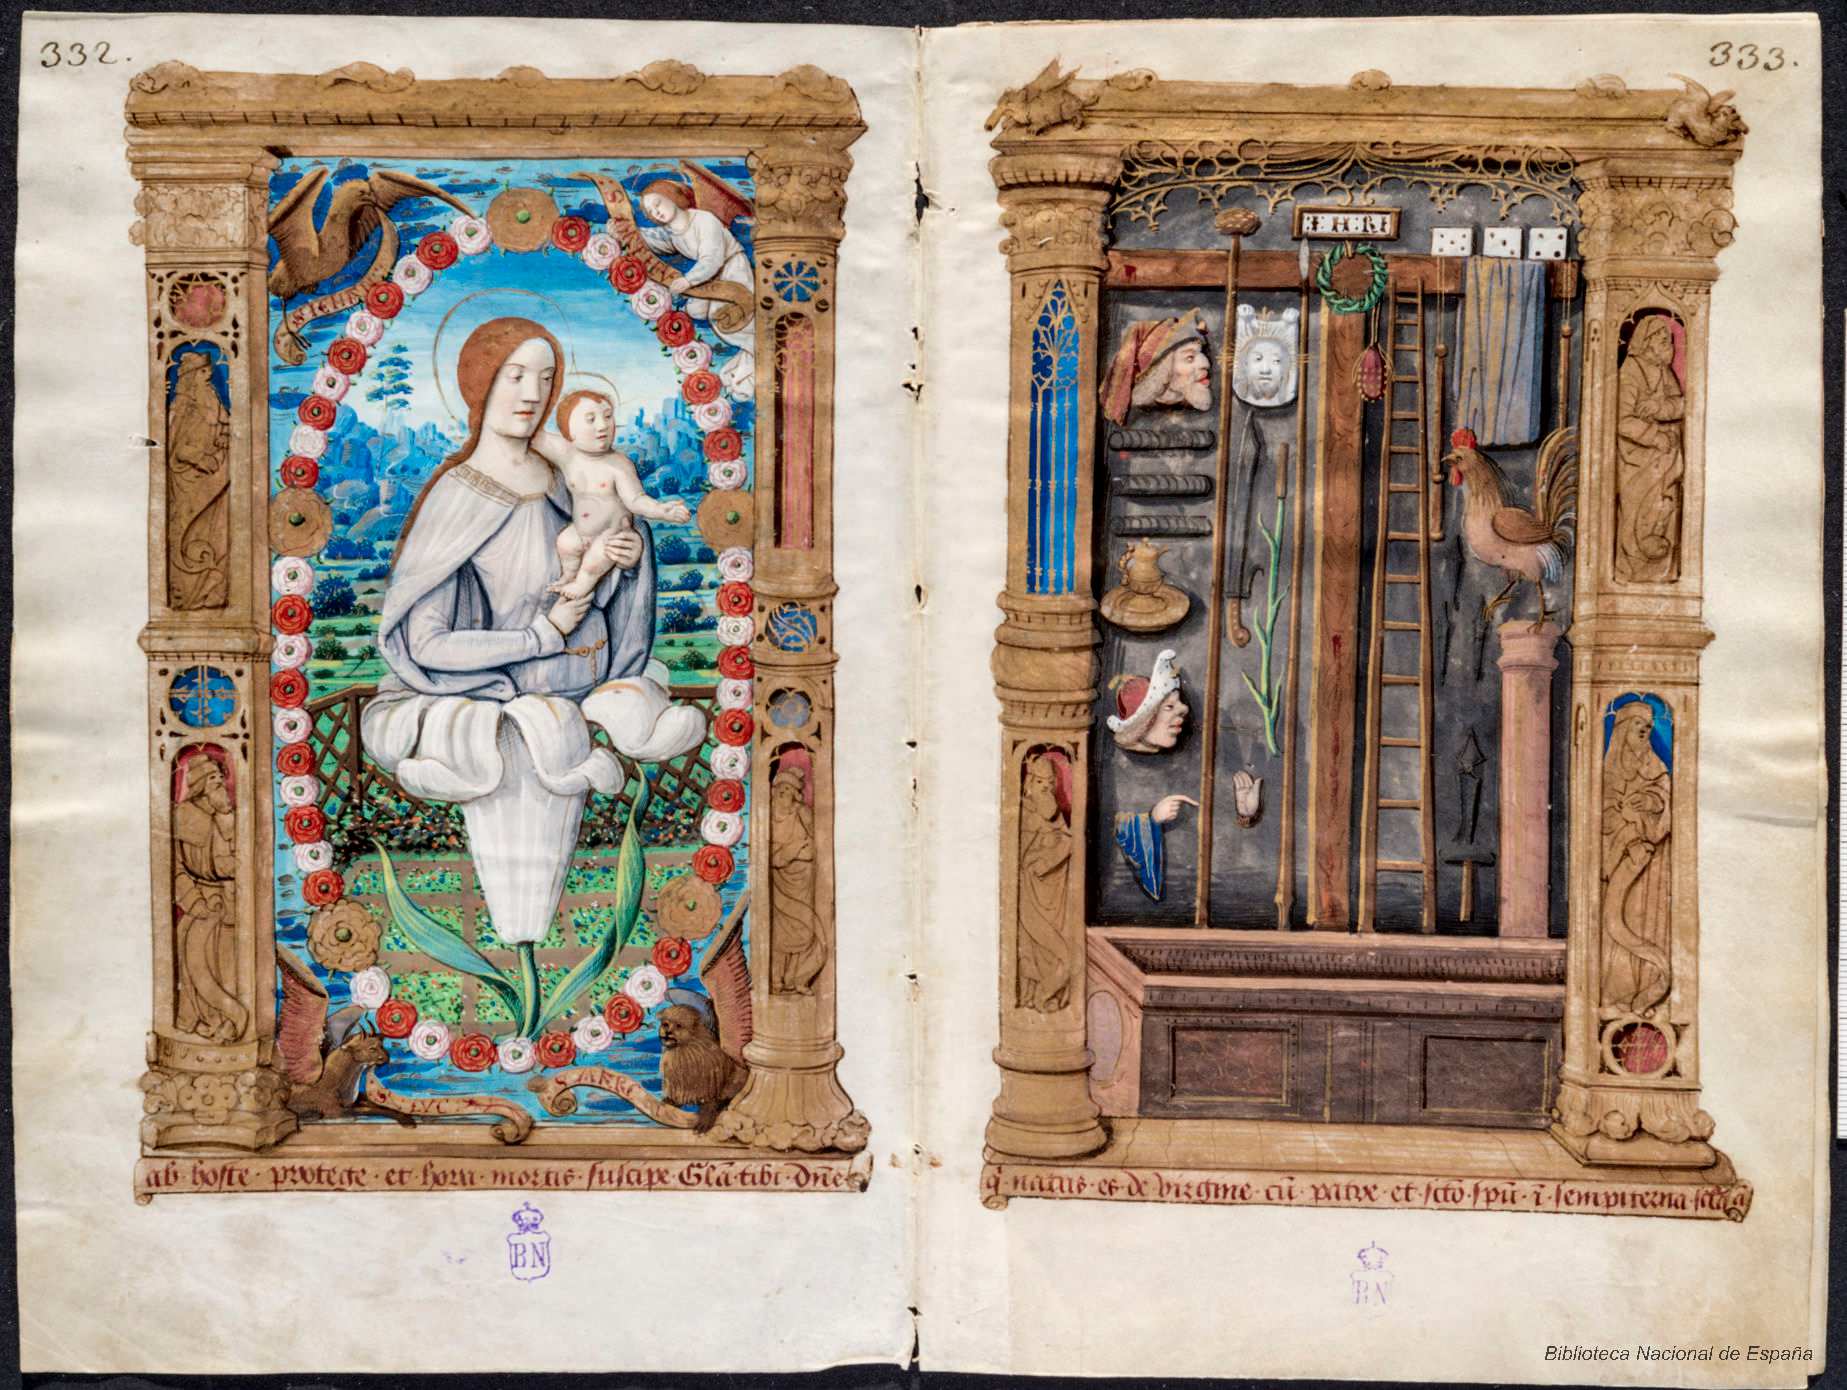 332.
333.
S. IOHA
S. LVC
S. MARC
I·H·R·I
ab · hoste · protege · et · hora · mortis · suscipe · Glã · tibi · dñe
q̃ · natus · es · de virgine · cũ · patre · et · scto · spũ · ĩ · sempiterna · scl̃a
BN
BN
Biblioteca Nacional de España